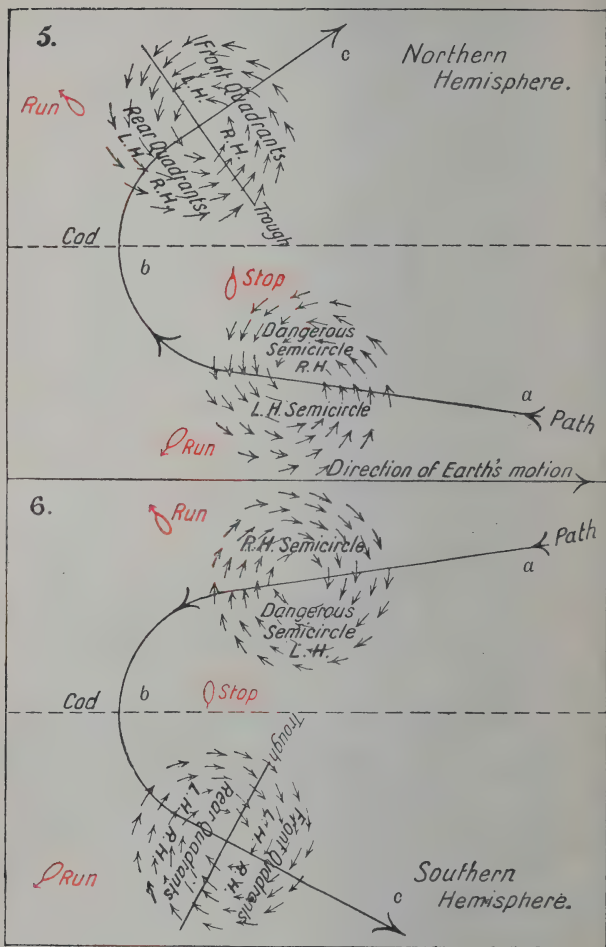 5.
c
Northern
Hemisphere.
Front Quadrants
L.H.
R.H.
Run
Rear Quadrants
L.H.
R.H.
Trough
Cod
b
Stop
Dangerous
Semicircle
R.H.
a
L.H. Semicircle
Path
Run
Direction of Earth's motion
6.
Run
R.H. Semicircle
Path
a
Dangerous
Semicircle
L.H.
b
Stop
Cod
Trough
L.H.
Rear Quadrants
R.H.
L.H.
Front Quadrants
R.H.
Run
c
Southern
Hemisphere.